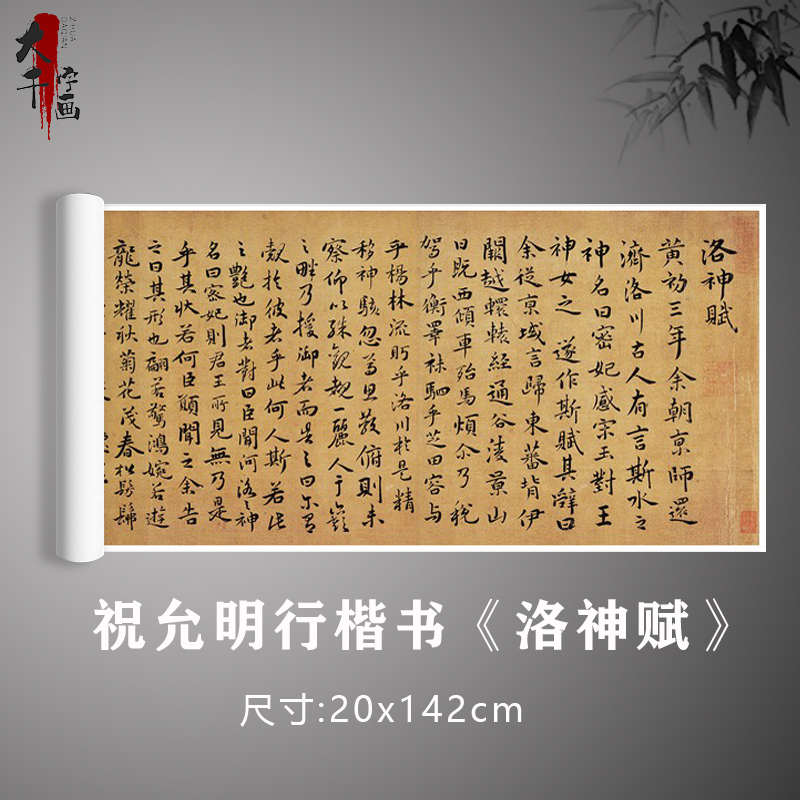 大千字画
DAQIAN
ZIHUA
洛神賦
黄初三年余朝京師還
濟洛川古人有言斯水之
神名曰密妃感宋玉對王
神女之 遂作斯賦其辭曰
余從京域言歸東藩背伊
闕越轘轅經通谷陵景山
日既西傾車殆馬煩尒乃税
駕乎衡皋秣駟乎芝田容与
乎楊林流眄乎洛川於是精
移神駭忽焉思散俯則未
察仰以殊觀覩一麗人于巖
之畔乃援御者而告之曰尔有
覿於彼者乎此何人斯若此
之艷也御者對曰臣聞河洛之神
名曰宓妃則君王所見無乃是
乎其状若何臣願聞之余告
之曰其形也翩若驚鴻婉若遊
龍榮耀秋菊花茂春松髣髴
祝允明行楷书《洛神赋》
尺寸:20x142cm